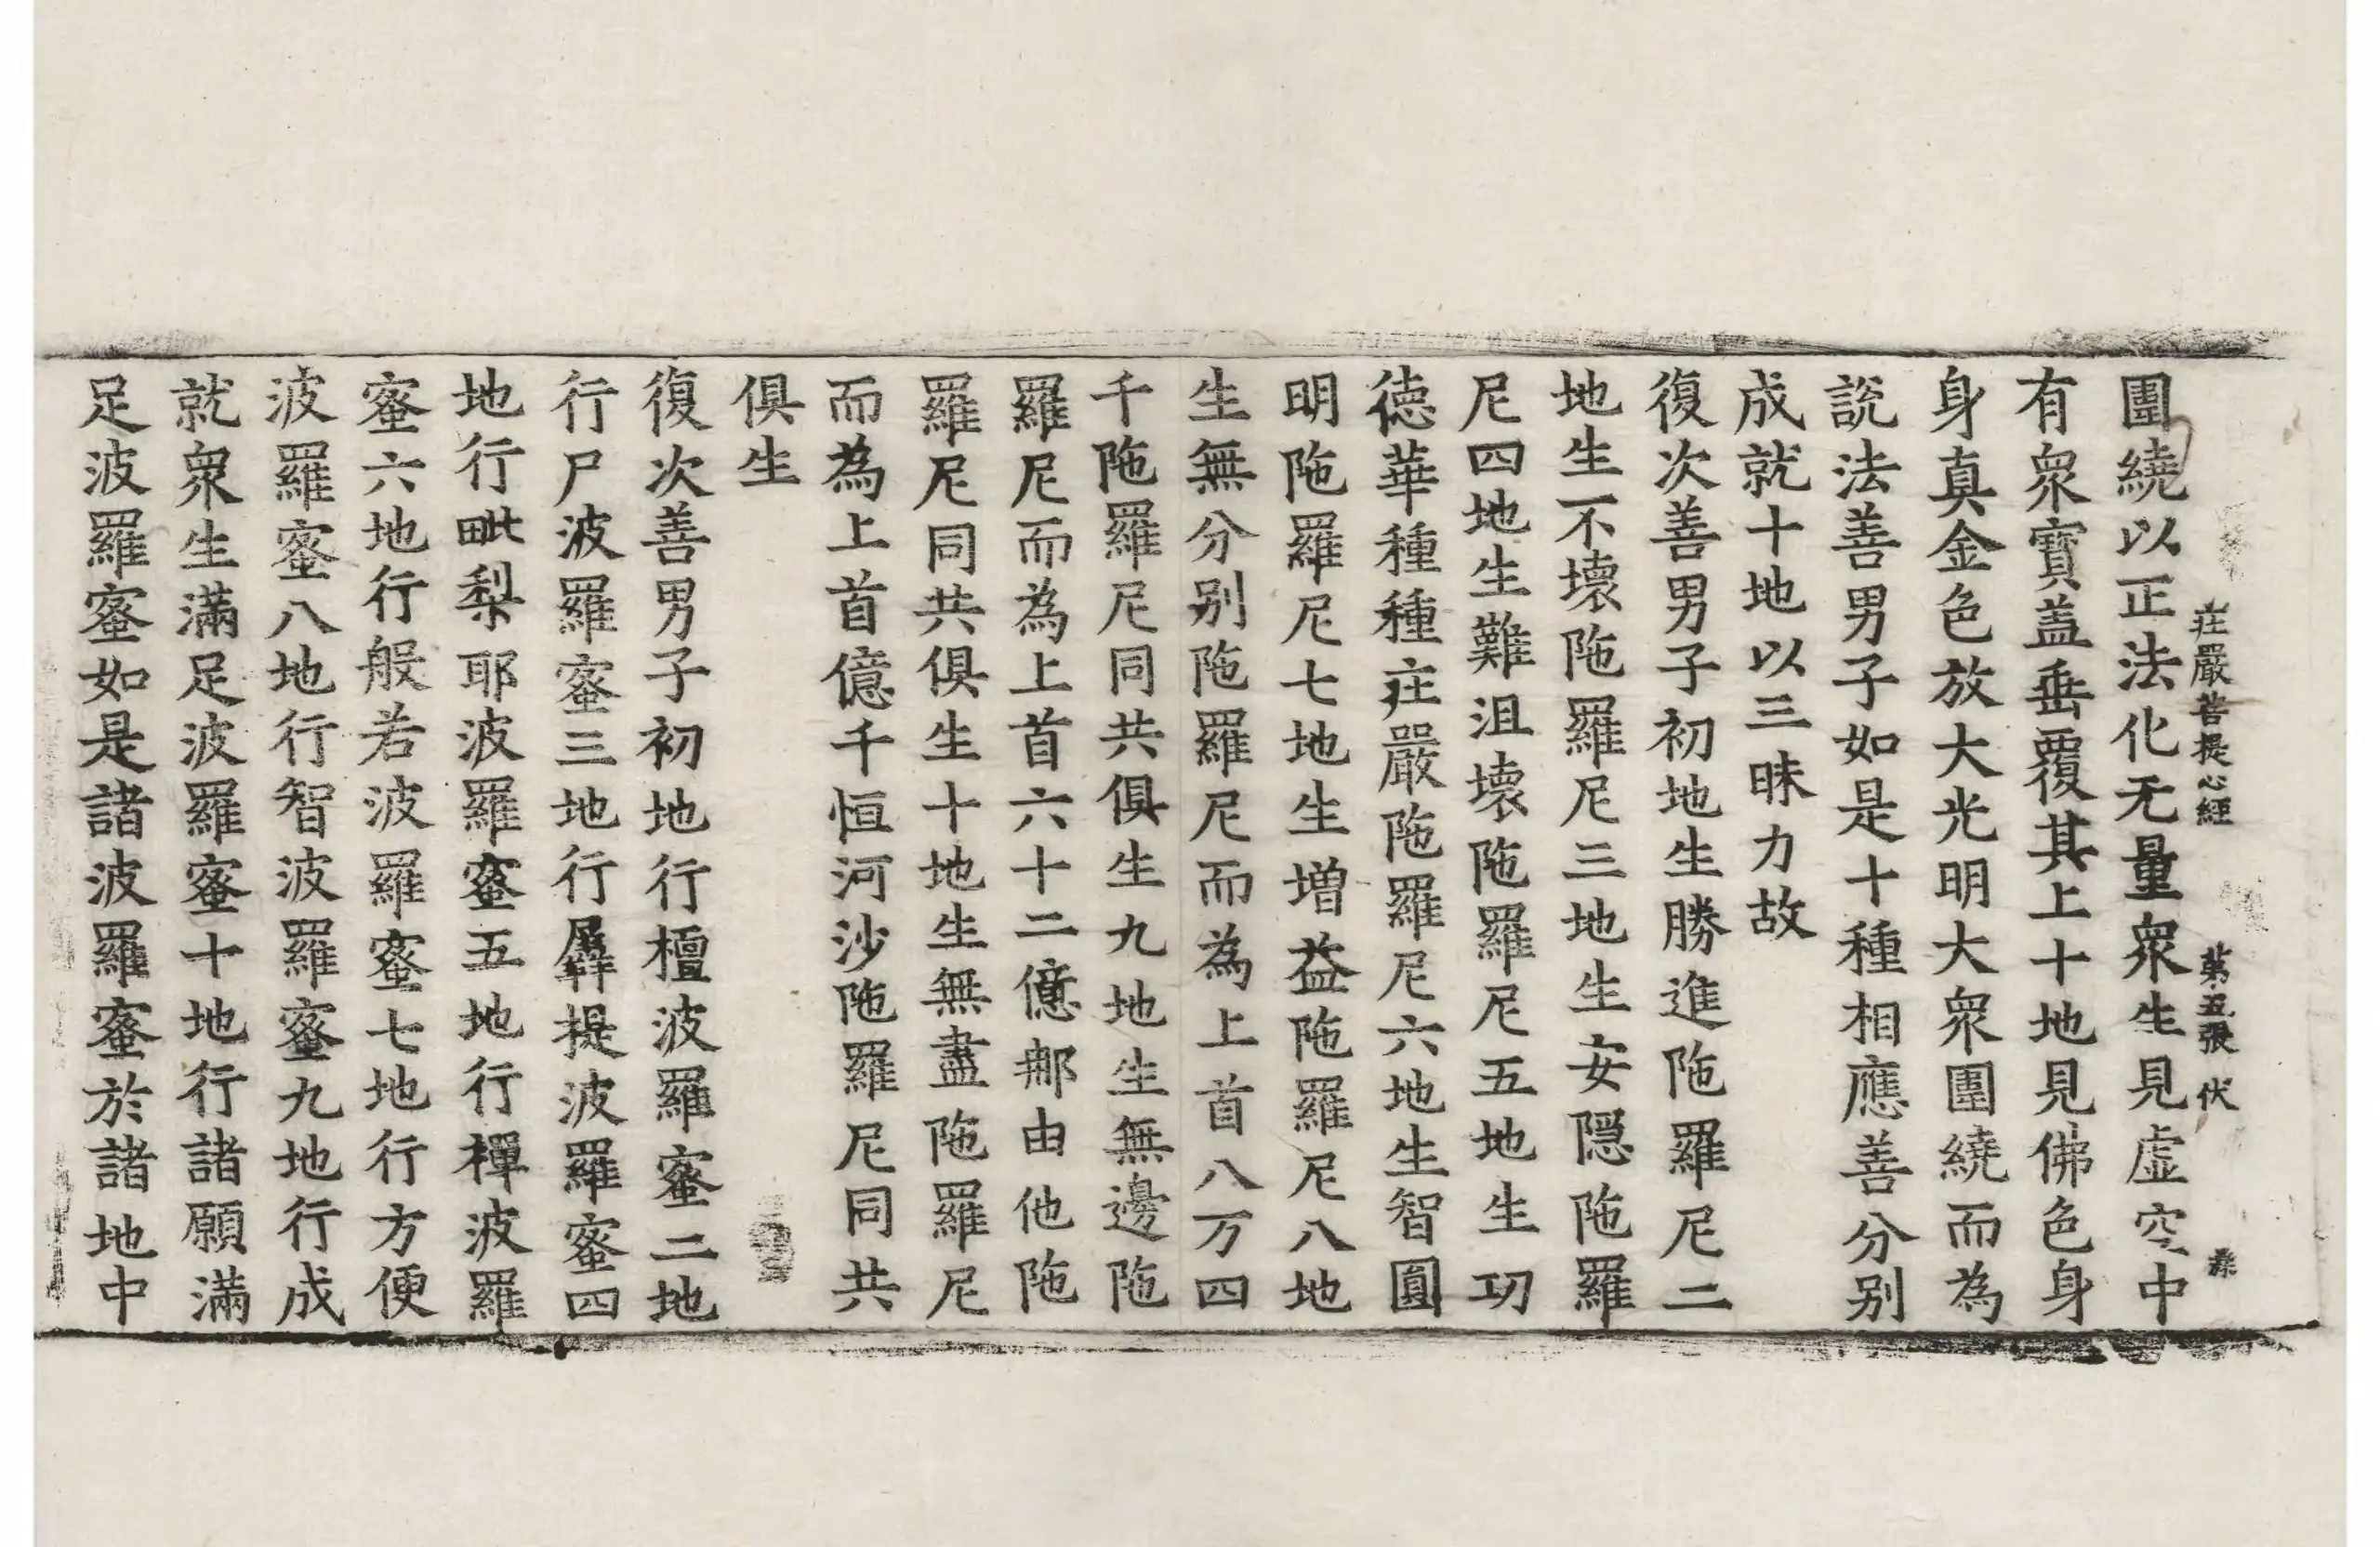 莊嚴菩提心經 第五張 伏
團繞以正法化无量衆生見虛空中
有衆寶盖垂覆其上十地見佛色身
身真金色放大光明大衆圍繞而為
說法善男子如是十種相應善分别
成就十地以三昧力故
復次善男子初地生勝進陁羅尼二
地生不壞陁羅尼三地生安隠陁羅
尼四地生難沮壞陁羅尼五地生功
德華種種莊嚴陁羅尼六地生智圓
明陁羅尼七地生増益陁羅尼八地
生無分别陁羅尼而為上首八万四
千陁羅尼同共俱生九地生無邊陁
羅尼而為上首六十二億那由他陁
羅尼同共俱生十地生無盡陁羅尼
而為上首億千恒河沙陁羅尼同共
俱生
復次善男子初地行檀波羅蜜二地
行尸波羅蜜三地行羼提波羅蜜四
地行毗梨耶波羅蜜五地行禪波羅
蜜六地行般若波羅蜜七地行方便
波羅蜜八地行智波羅蜜九地行成
就衆生滿足波羅蜜十地行諸願滿
足波羅蜜如是諸波羅蜜於諸地中